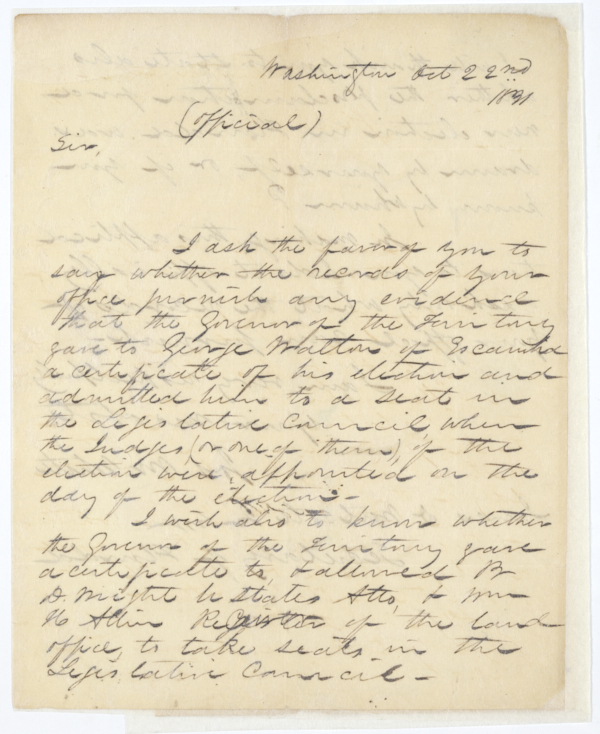 Washington Oct 22nd
1831
(Official)
Sir,
I ask the favor of you to
say whether the records of your
office furnish any evidence
that the Govenor of the Territory
gave to George Walton of Escambia
a certificate of his election and
admitted him to a seat in
the Legislative Council when
the Judges (or one of them), of the
election were, appointed on the
day of the election -
I wish also to know whether
the Govenor of the Territory gave
a certificate to, & allowed B
D. Wright U States Atto, & Wm
H Allen Register of the land
office, to take seats in the
Legislative Council -